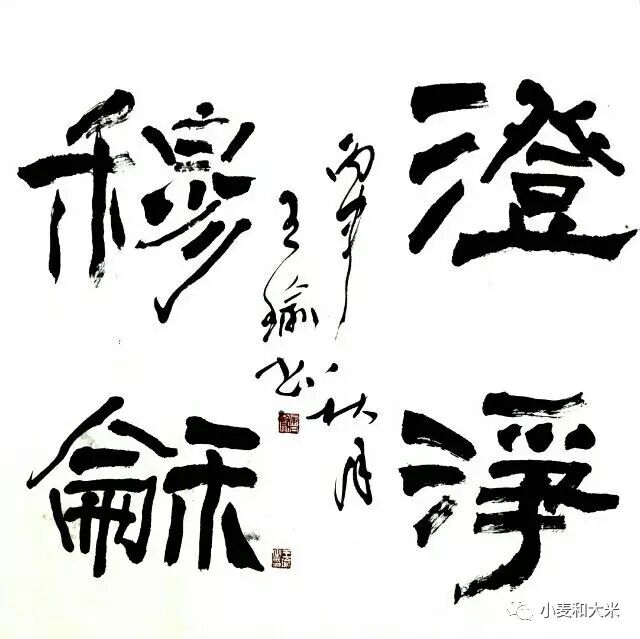 澄淨
穆龢
丙申秋月
王瑜书
小麦和大米